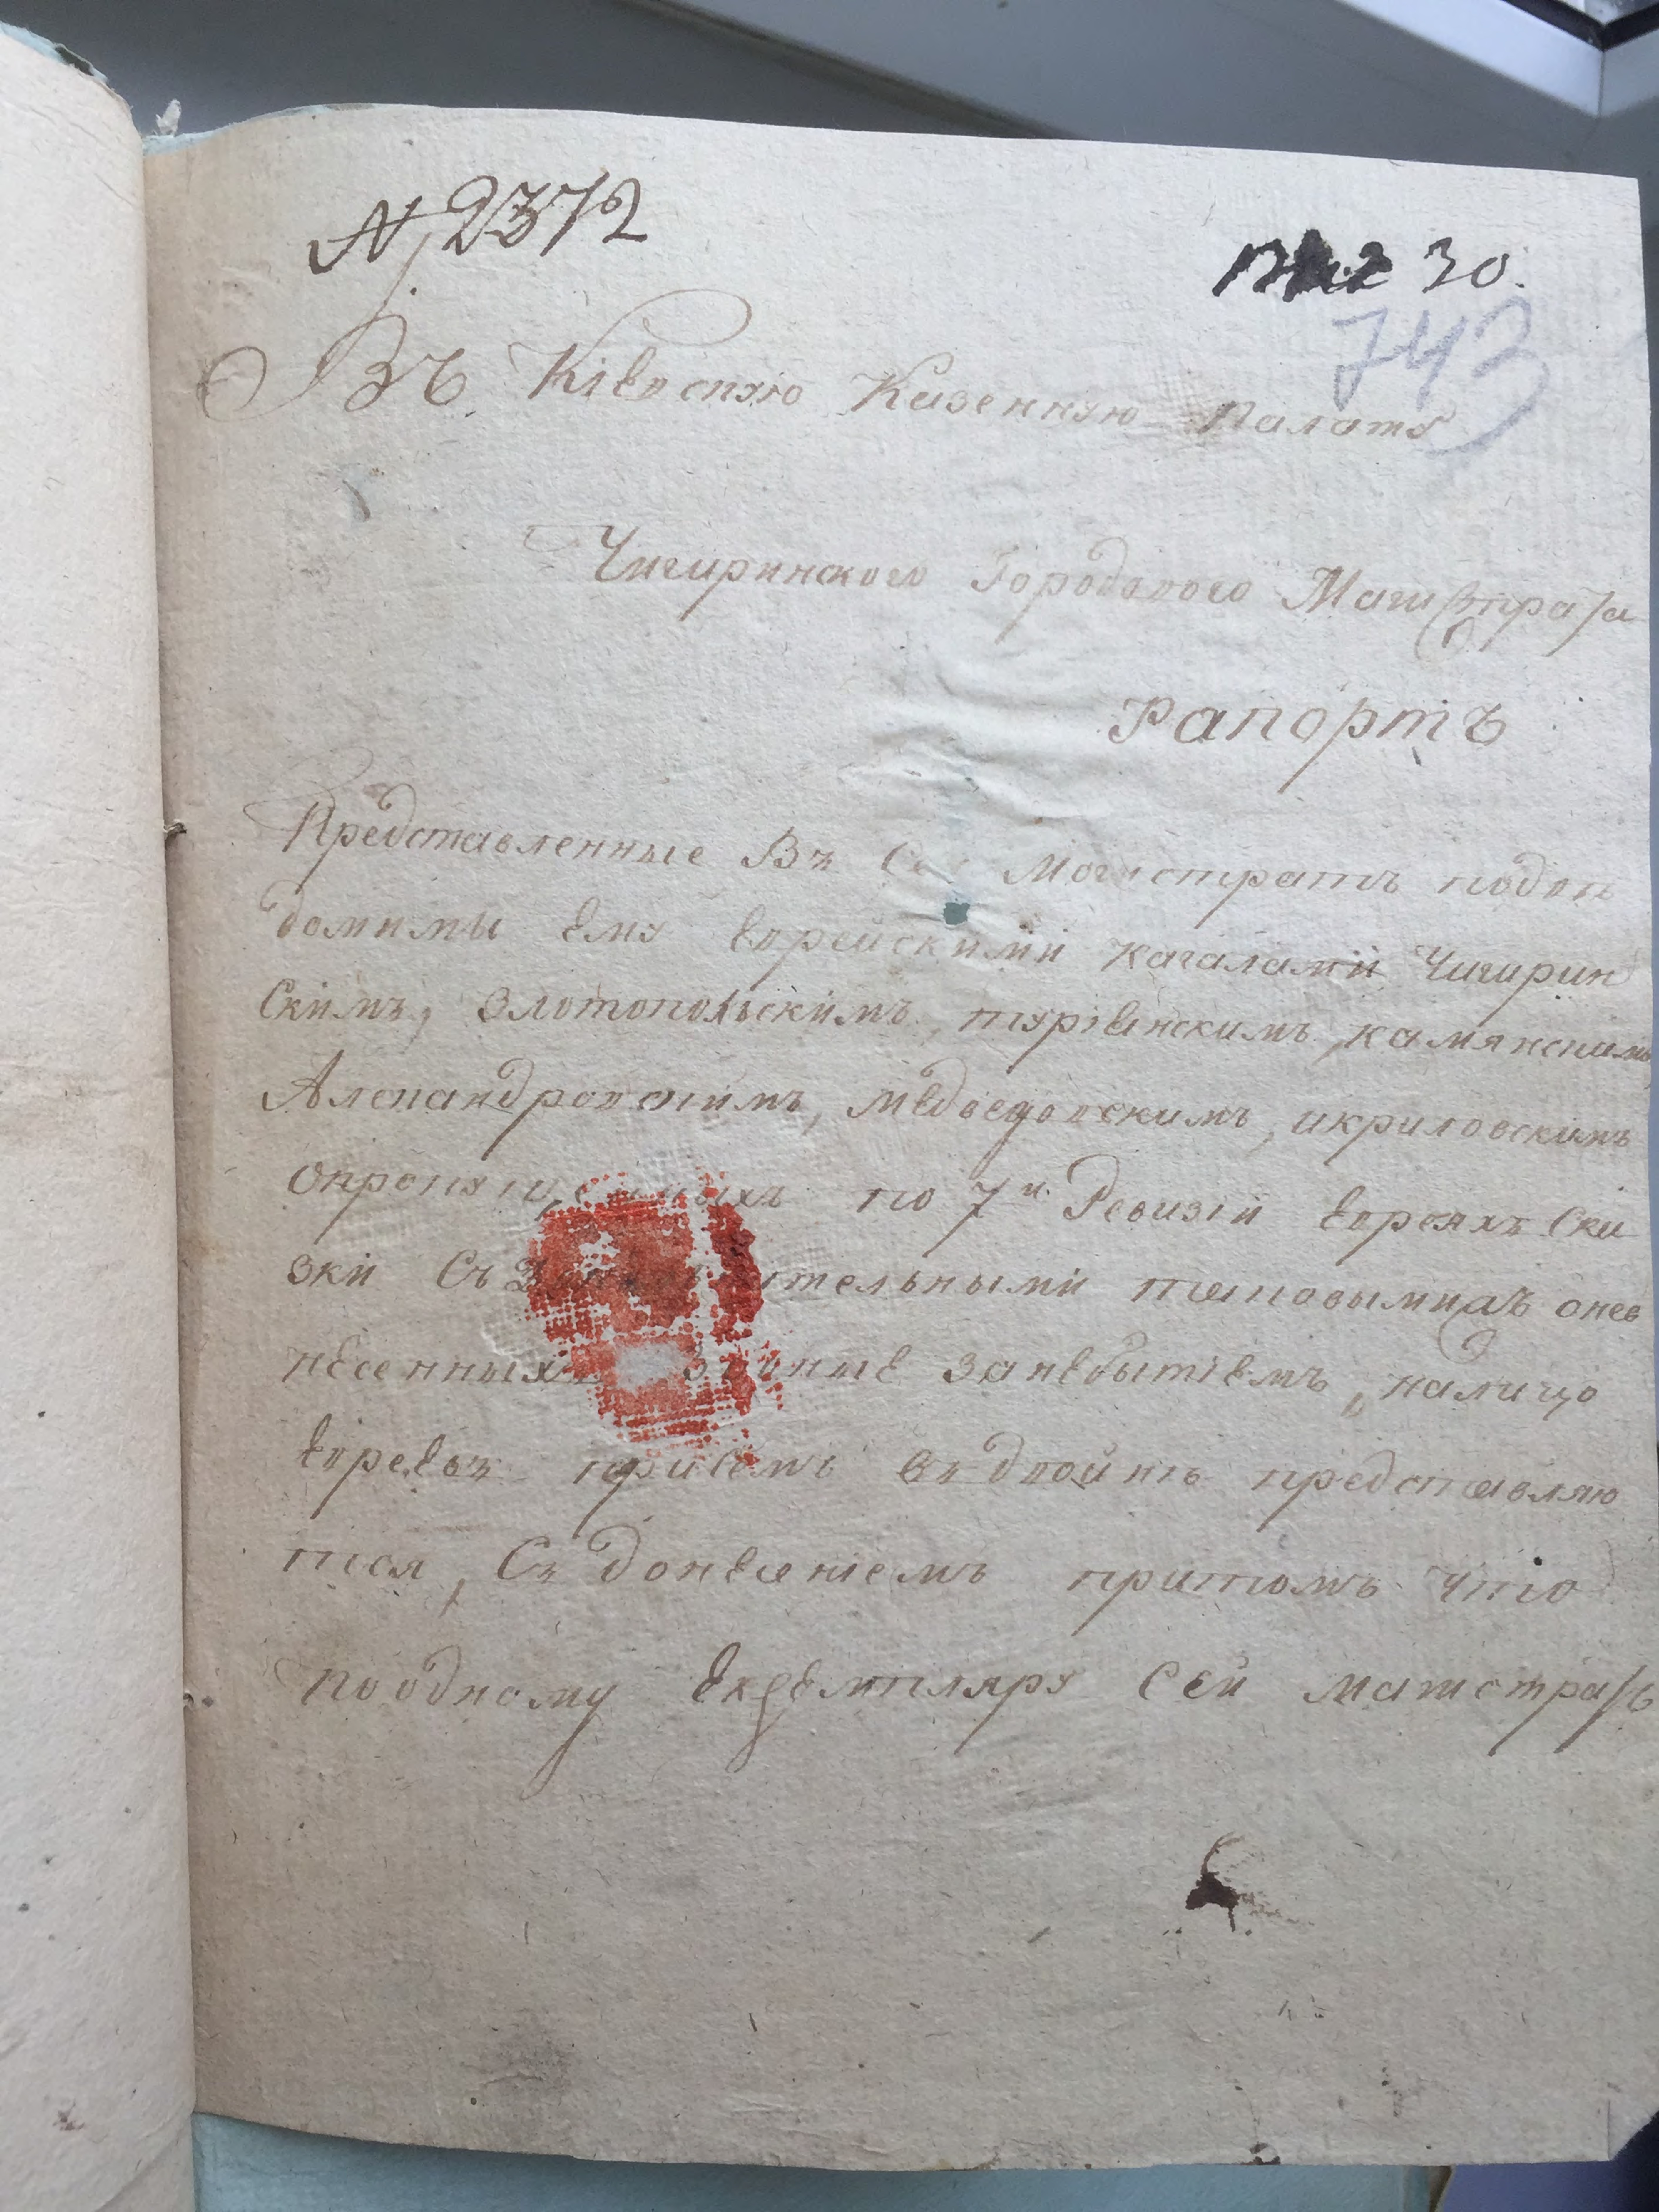 № 2372
30.
743
Въ Кіевскую Казенную Палату
Чигиринского Городового Магистрата
Рапортъ
Представленные Въ Магистратъ подвѣ
домимы ему Еврейскими кагалами Чигирин
скимъ, Златопольскимъ, туріевскимъ, камянскимъ
Александровскимъ, медведовскимъ, икриловскимъ
опропущенныхъ по 7й Ревизіи Евреяхъ Ска
зки Съ тельными
несенныхъ занебытіемъ, налицо
Евреевъ присемъ въ двойнѣ представляю
тся, Съ донесеніемъ притомъ что
поодному Екземпляру Сей магистратъ